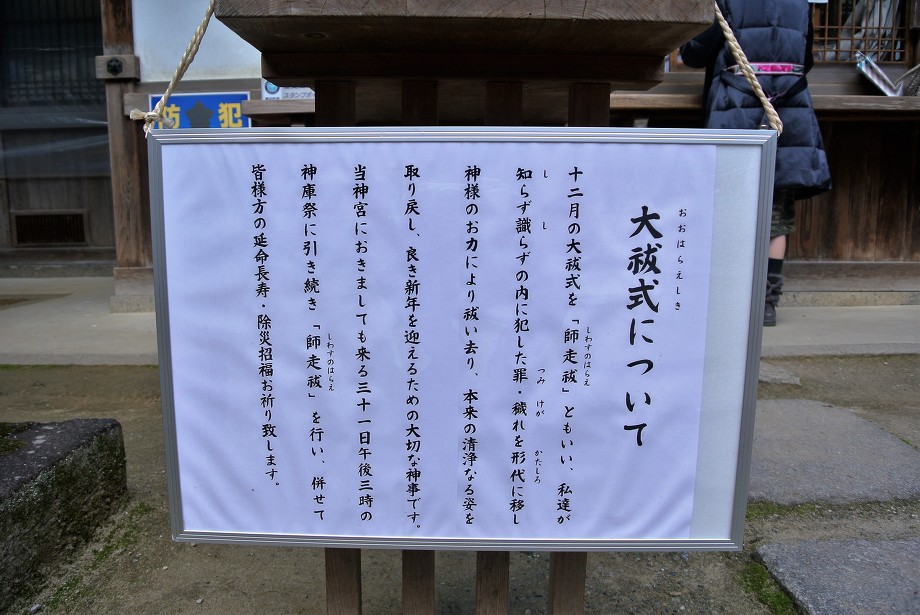 大祓式について
おおはらえしき
十二月の大祓式を「師走祓」ともいい、私達が
しわすのはらえ
知らず識らずの内に犯した罪・穢れを形代に移し
し
し
つみ
けが
かたしろ
神様のお力により祓い去り、本来の清浄なる姿を
取り戻し、良き新年を迎えるための大切な神事です。
当神宮におきましても来る三十一日午後三時の
神庫祭に引き続き「師走祓」を行い、併せて
しわすのはらえ
皆様方の延命長寿・除災招福お祈り致します。
防犯
スタンプ